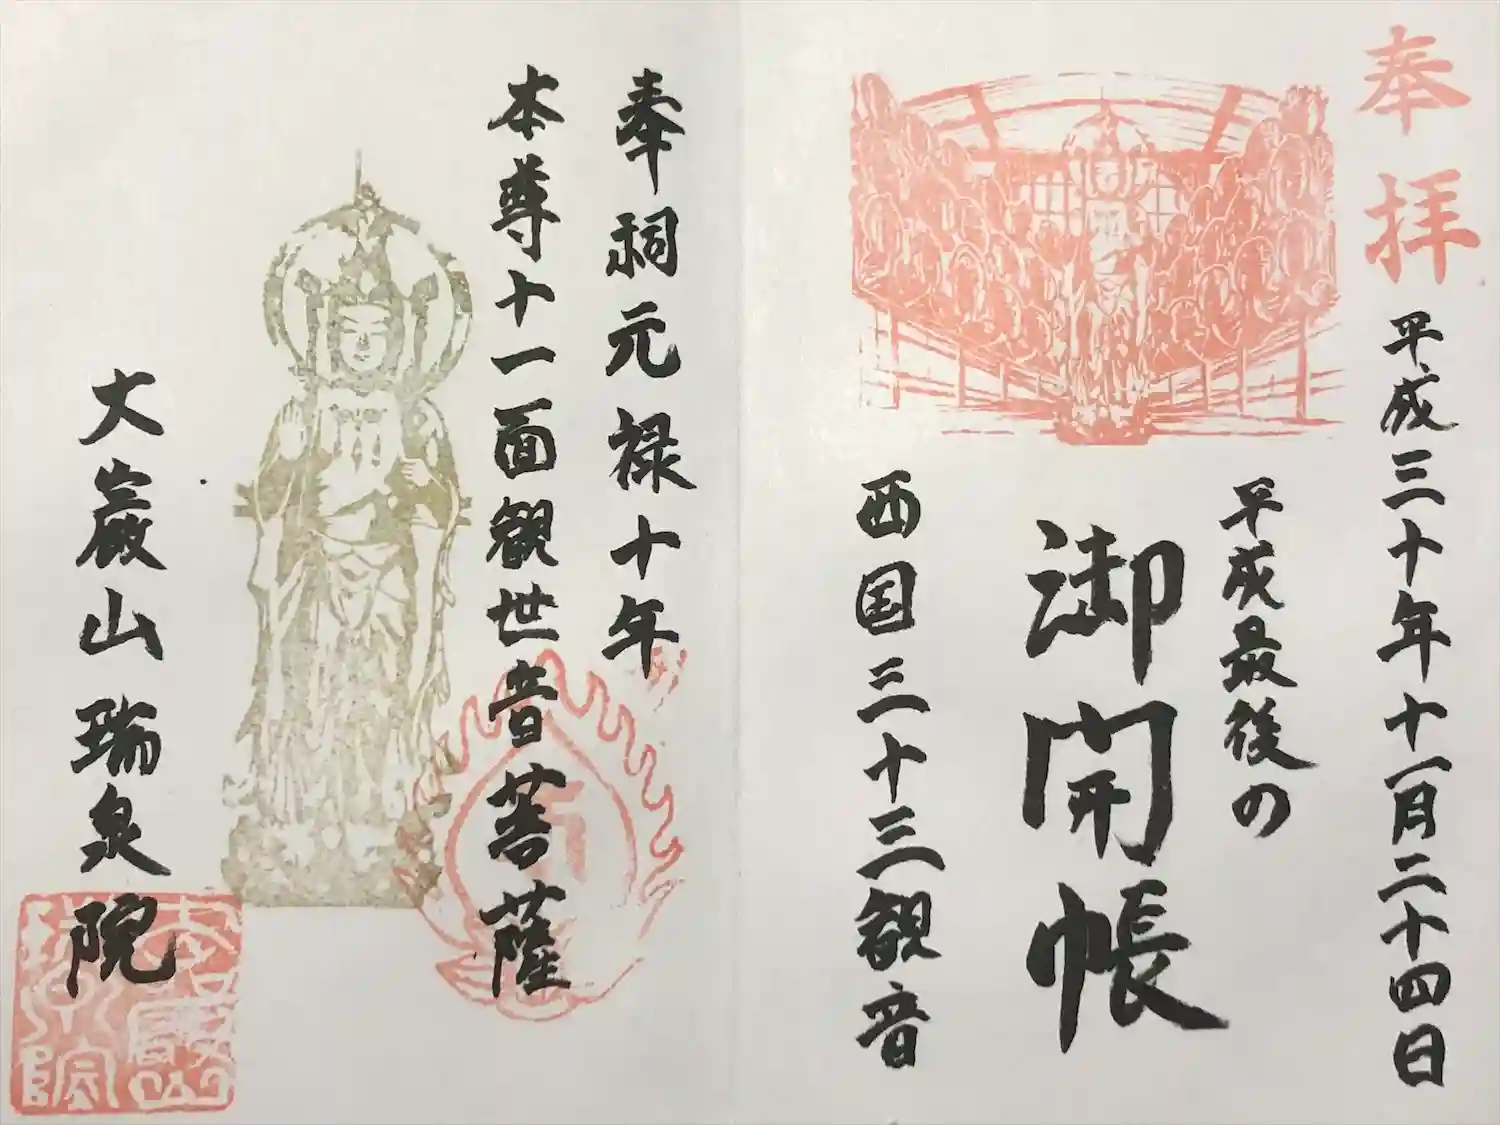 奉拝
平成三十年十一月二十四日
平成最後の
御開帳
西国三十三観音
奉祠元禄十年
本尊十一面観世音菩薩
大巌山瑞泉院
大巌山
瑞泉院